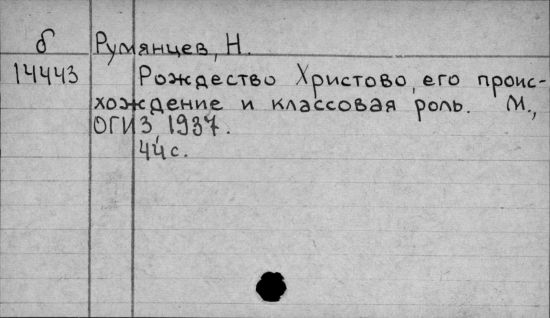 б Румянцев, Н.
14443 Рождество Христово, его проис-
хождение и классовая роль. М.,
ОГИЗ, 1937.
44 с.